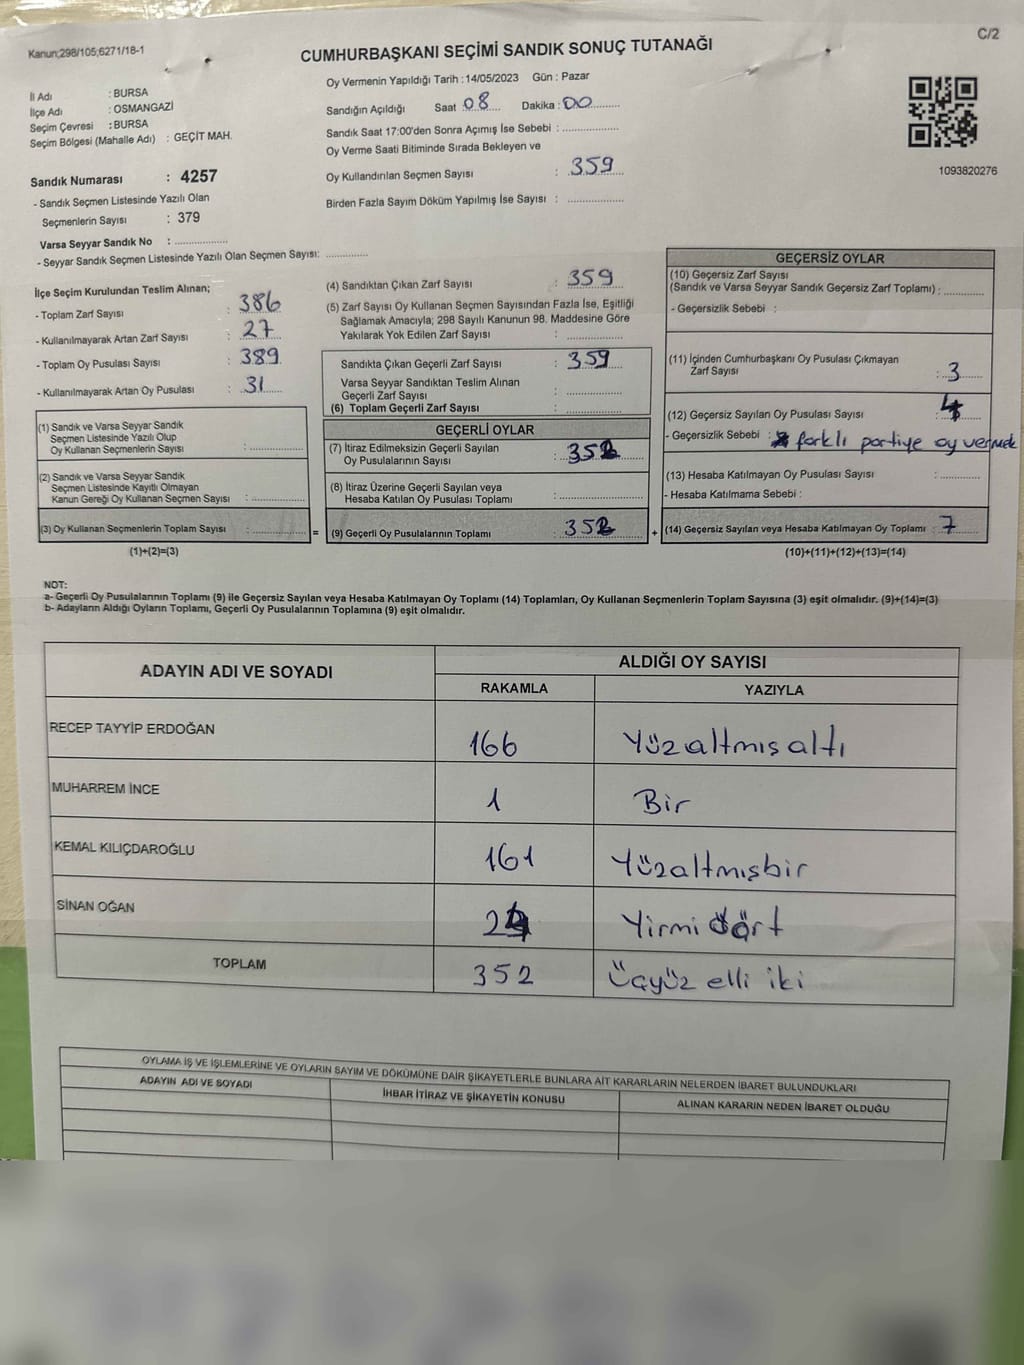 Kanun;298/105;6271/18-1
C/2
CUMHURBAŞKANI SEÇİMİ SANDIK SONUÇ TUTANAĞI
İl Adı : BURSA
İlçe Adı : OSMANGAZİ
Seçim Çevresi : BURSA
Seçim Bölgesi (Mahalle Adı) : GEÇİT MAH.
Sandık Numarası : 4257
- Sandık Seçmen Listesinde Yazılı Olan
Seçmenlerin Sayısı : 379
Varsa Seyyar Sandık No : ..................
- Seyyar Sandık Seçmen Listesinde Yazılı Olan Seçmen Sayısı: ..............
Oy Vermenin Yapıldığı Tarih : 14/05/2023 Gün : Pazar
Sandığın Açıldığı Saat : 08 Dakika : 00
Sandık Saat 17:00'den Sonra Açımış İse Sebebi : ..................
Oy Verme Saati Bitiminde Sırada Bekleyen ve
Oy Kullandırılan Seçmen Sayısı : 359
Birden Fazla Sayım Döküm Yapılmış İse Sayısı : ..................
1093820276
İlçe Seçim Kurulundan Teslim Alınan;
- Toplam Zarf Sayısı : 386
- Kullanılmayarak Artan Zarf Sayısı : 27
- Toplam Oy Pusulası Sayısı : 389
- Kullanılmayarak Artan Oy Pusulası : 31
(1) Sandık ve Varsa Seyyar Sandık
Seçmen Listesinde Yazılı Olup
Oy Kullanan Seçmenlerin Sayısı : ..................
(2) Sandık ve Varsa Seyyar Sandık
Seçmen Listesinde Kayıtlı Olmayan
Kanun Gereği Oy Kullanan Seçmen Sayısı : ..................
(3) Oy Kullanan Seçmenlerin Toplam Sayısı : .................. =
(1)+(2)=(3)
(4) Sandıktan Çıkan Zarf Sayısı : 359
(5) Zarf Sayısı Oy Kullanan Seçmen Sayısından Fazla İse, Eşitliği
Sağlamak Amacıyla; 298 Sayılı Kanunun 98. Maddesine Göre
Yakılarak Yok Edilen Zarf Sayısı : ..................
Sandıkta Çıkan Geçerli Zarf Sayısı : 359
Varsa Seyyar Sandıktan Teslim Alınan
Geçerli Zarf Sayısı : ..................
(6) Toplam Geçerli Zarf Sayısı : ..................
GEÇERLİ OYLAR
(7) İtiraz Edilmeksizin Geçerli Sayılan
Oy Pusulalarının Sayısı : 352
(8) İtiraz Üzerine Geçerli Sayılan veya
Hesaba Katılan Oy Pusulası Toplamı : ..................
(9) Geçerli Oy Pusulalarının Toplamı : 352 +
GEÇERSİZ OYLAR
(10) Geçersiz Zarf Sayısı
(Sandık ve Varsa Seyyar Sandık Geçersiz Zarf Toplamı) : ............
- Geçersizlik Sebebi :
(11) İçinden Cumhurbaşkanı Oy Pusulası Çıkmayan
Zarf Sayısı : 3
(12) Geçersiz Sayılan Oy Pusulası Sayısı : 4
- Geçersizlik Sebebi : farklı partiye oy vermek
(13) Hesaba Katılmayan Oy Pusulası Sayısı : ............
- Hesaba Katılmama Sebebi :
(14) Geçersiz Sayılan veya Hesaba Katılmayan Oy Toplamı : 7
(10)+(11)+(12)+(13)=(14)
NOT:
a- Geçerli Oy Pusulalarının Toplamı (9) ile Geçersiz Sayılan veya Hesaba Katılmayan Oy Toplamı (14) Toplamları, Oy Kullanan Seçmenlerin Toplam Sayısına (3) eşit olmalıdır. (9)+(14)=(3)
b- Adayların Aldığı Oyların Toplamı, Geçerli Oy Pusulalarının Toplamına (9) eşit olmalıdır.
ADAYIN ADI VE SOYADI
ALDIĞI OY SAYISI
RAKAMLA YAZIYLA
RECEP TAYYİP ERDOĞAN 166 Yüzaltmışaltı
MUHARREM İNCE 1 Bir
KEMAL KILIÇDAROĞLU 161 Yüzaltmışbir
SİNAN OĞAN 24 Yirmi dört
TOPLAM 352 Üçyüz elli iki
OYLAMA İŞ VE İŞLEMLERİNE VE OYLARIN SAYIM VE DÖKÜMÜNE DAİR ŞİKAYETLERLE BUNLARA AİT KARARLARIN NELERDEN İBARET BULUNDUKLARI
ADAYIN ADI VE SOYADI İHBAR İTİRAZ VE ŞİKAYETİN KONUSU ALINAN KARARIN NEDEN İBARET OLDUĞU